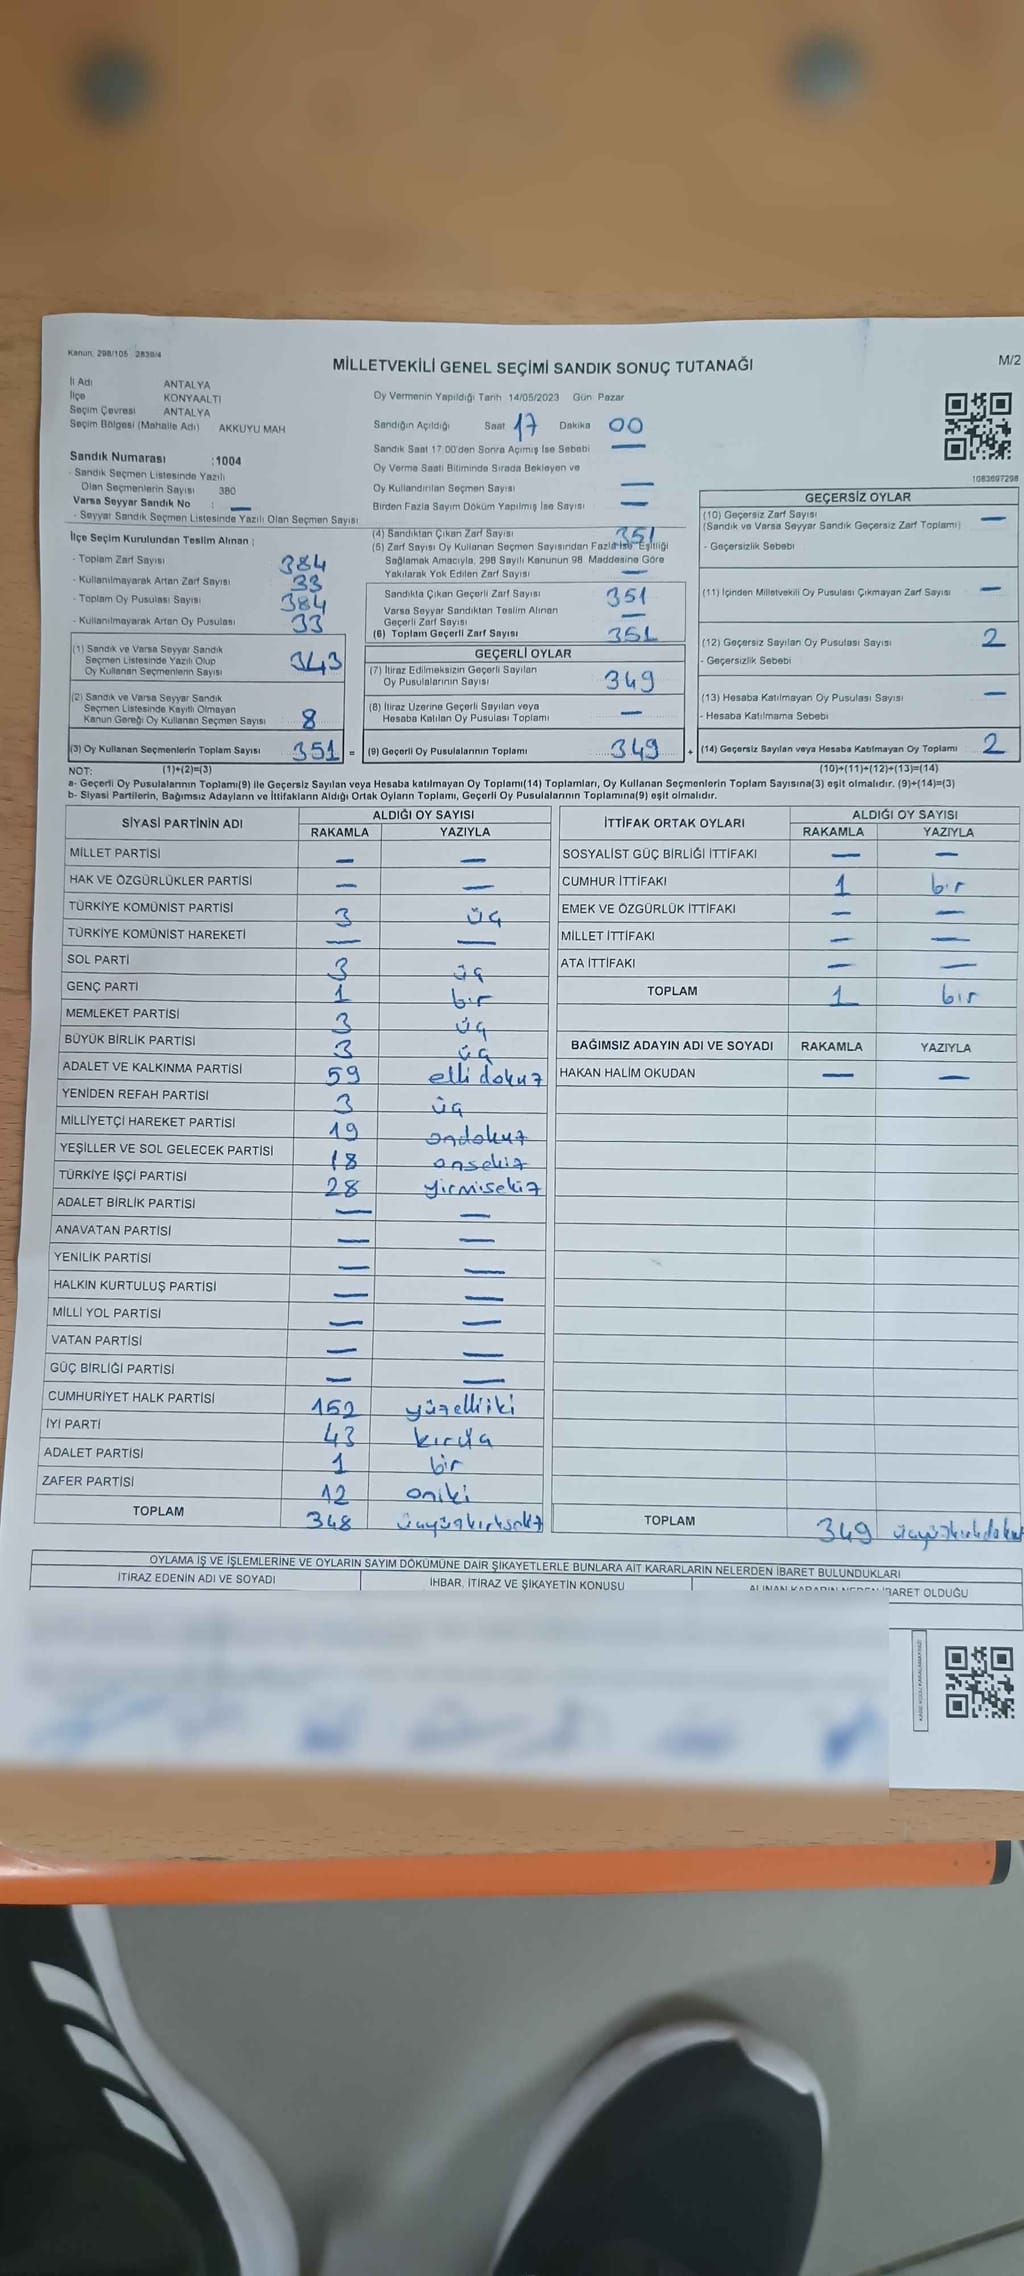 Kanun, 298/105 2839/4
MİLLETVEKİLİ GENEL SEÇİMİ SANDIK SONUÇ TUTANAĞI
M/2
İl Adı ANTALYA
İlçe KONYAALTI
Seçim Çevresi ANTALYA
Seçim Bölgesi (Mahalle Adı) AKKUYU MAH
Sandık Numarası :1004
- Sandık Seçmen Listesinde Yazılı
Olan Seçmenlerin Sayısı 380
Varsa Seyyar Sandık No : —
- Seyyar Sandık Seçmen Listesinde Yazılı Olan Seçmen Sayısı
İlçe Seçim Kurulundan Teslim Alınan :
- Toplam Zarf Sayısı 384
- Kullanılmayarak Artan Zarf Sayısı 33
- Toplam Oy Pusulası Sayısı 384
- Kullanılmayarak Artan Oy Pusulası 33
(1) Sandık ve Varsa Seyyar Sandık
Seçmen Listesinde Yazılı Olup
Oy Kullanan Seçmenlerin Sayısı 343
(2) Sandık ve Varsa Seyyar Sandık
Seçmen Listesinde Kayıtlı Olmayan
Kanun Gereği Oy Kullanan Seçmen Sayısı 8
(3) Oy Kullanan Seçmenlerin Toplam Sayısı 351 =
Oy Vermenin Yapıldığı Tarih 14/05/2023 Gün Pazar
Sandığın Açıldığı Saat 17 Dakika 00
Sandık Saat 17:00'den Sonra Açımış İse Sebebi —
Oy Verme Saati Bitiminde Sırada Bekleyen ve
Oy Kullandırılan Seçmen Sayısı —
Birden Fazla Sayım Döküm Yapılmış İse Sayısı —
(4) Sandıktan Çıkan Zarf Sayısı 351
(5) Zarf Sayısı Oy Kullanan Seçmen Sayısından Fazla İse Eşitliği
Sağlamak Amacıyla, 298 Sayılı Kanunun 98 Maddesine Göre
Yakılarak Yok Edilen Zarf Sayısı —
Sandıkta Çıkan Geçerli Zarf Sayısı 351
Varsa Seyyar Sandıktan Teslim Alınan
Geçerli Zarf Sayısı —
(6) Toplam Geçerli Zarf Sayısı 351
GEÇERLİ OYLAR
(7) İtiraz Edilmeksizin Geçerli Sayılan
Oy Pusulalarının Sayısı 349
(8) İtiraz Üzerine Geçerli Sayılan veya
Hesaba Katılan Oy Pusulası Toplamı —
(9) Geçerli Oy Pusulalarının Toplamı 349 +
1083697298
GEÇERSİZ OYLAR
(10) Geçersiz Zarf Sayısı —
(Sandık ve Varsa Seyyar Sandık Geçersiz Zarf Toplamı)
- Geçersizlik Sebebi
(11) İçinden Milletvekili Oy Pusulası Çıkmayan Zarf Sayısı —
(12) Geçersiz Sayılan Oy Pusulası Sayısı 2
- Geçersizlik Sebebi
(13) Hesaba Katılmayan Oy Pusulası Sayısı —
- Hesaba Katılmama Sebebi
(14) Geçersiz Sayılan veya Hesaba Katılmayan Oy Toplamı 2
NOT: (1)+(2)=(3) (10)+(11)+(12)+(13)=(14)
a- Geçerli Oy Pusulalarının Toplamı(9) ile Geçersiz Sayılan veya Hesaba katılmayan Oy Toplamı(14) Toplamları, Oy Kullanan Seçmenlerin Toplam Sayısına(3) eşit olmalıdır. (9)+(14)=(3)
b- Siyasi Partilerin, Bağımsız Adayların ve İttifakların Aldığı Ortak Oyların Toplamı, Geçerli Oy Pusulalarının Toplamına(9) eşit olmalıdır.
SİYASİ PARTİNİN ADI ALDIĞI OY SAYISI
RAKAMLA YAZIYLA
MİLLET PARTİSİ — —
HAK VE ÖZGÜRLÜKLER PARTİSİ — —
TÜRKİYE KOMÜNİST PARTİSİ 3 üç
TÜRKİYE KOMÜNİST HAREKETİ — —
SOL PARTİ 3 üç
GENÇ PARTİ 1 bir
MEMLEKET PARTİSİ 3 üç
BÜYÜK BİRLİK PARTİSİ 3 üç
ADALET VE KALKINMA PARTİSİ 59 elli dokuz
YENİDEN REFAH PARTİSİ 3 üç
MİLLİYETÇİ HAREKET PARTİSİ 19 ondokuz
YEŞİLLER VE SOL GELECEK PARTİSİ 18 onsekiz
TÜRKİYE İŞÇİ PARTİSİ 28 yirmisekiz
ADALET BİRLİK PARTİSİ — —
ANAVATAN PARTİSİ — —
YENİLİK PARTİSİ — —
HALKIN KURTULUŞ PARTİSİ — —
MİLLİ YOL PARTİSİ — —
VATAN PARTİSİ — —
GÜÇ BİRLİĞİ PARTİSİ — —
CUMHURİYET HALK PARTİSİ 152 yüzelliiki
İYİ PARTİ 43 kırküç
ADALET PARTİSİ 1 bir
ZAFER PARTİSİ 12 oniki
TOPLAM 348 üçyüzkırksekiz
İTTİFAK ORTAK OYLARI ALDIĞI OY SAYISI
RAKAMLA YAZIYLA
SOSYALİST GÜÇ BİRLİĞİ İTTİFAKI — —
CUMHUR İTTİFAKI 1 bir
EMEK VE ÖZGÜRLÜK İTTİFAKI — —
MİLLET İTTİFAKI — —
ATA İTTİFAKI — —
TOPLAM 1 bir
BAĞIMSIZ ADAYIN ADI VE SOYADI RAKAMLA YAZIYLA
HAKAN HALİM OKUDAN — —
TOPLAM 349 üçyüzkırkdokuz
OYLAMA İŞ VE İŞLEMLERİNE VE OYLARIN SAYIM DÖKÜMÜNE DAİR ŞİKAYETLERLE BUNLARA AİT KARARLARIN NELERDEN İBARET BULUNDUKLARI
İTİRAZ EDENİN ADI VE SOYADI İHBAR, İTİRAZ VE ŞİKAYETİN KONUSU ALINAN KARARIN NEDEN İBARET OLDUĞU